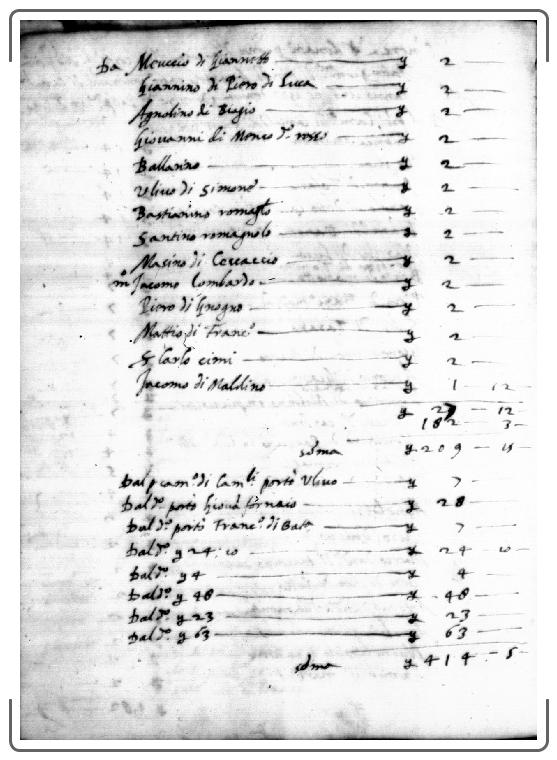 Da Meuccio di Giannetto y 2
Giannino di Piero di Luca y 2
Agnolino di Biagio y 2
Giovanni di Menco d.º rosso y 2
Ballarino y 2
Ulivo di Simone y 2
Bastianino romag.lo y 2
Santino romagnolo y 2
Masino di Ceccaccio y 2
m.º Jacomo Lombardo y 2
Piero di Gnogno y 2
Mattio di Franc.º y 2
S Carlo cimi y 2
Jacomo di Maldino y 1 12
y 27 12
182 3
soma y 209 15
Dal p cam.º di Camb.li portò Ulivo y 7
Dal d.º portò Giovã fornaio y 28
Dal d.º portò Franc.º di Batt y 7
Dal d.º y 24:10 y 24 10
Dal d.º y 4 y 4
Dal d.º y 48 y 48
Dal d.º y 23 y 23
Dal d.º y 63 y 63
soma y 414 5